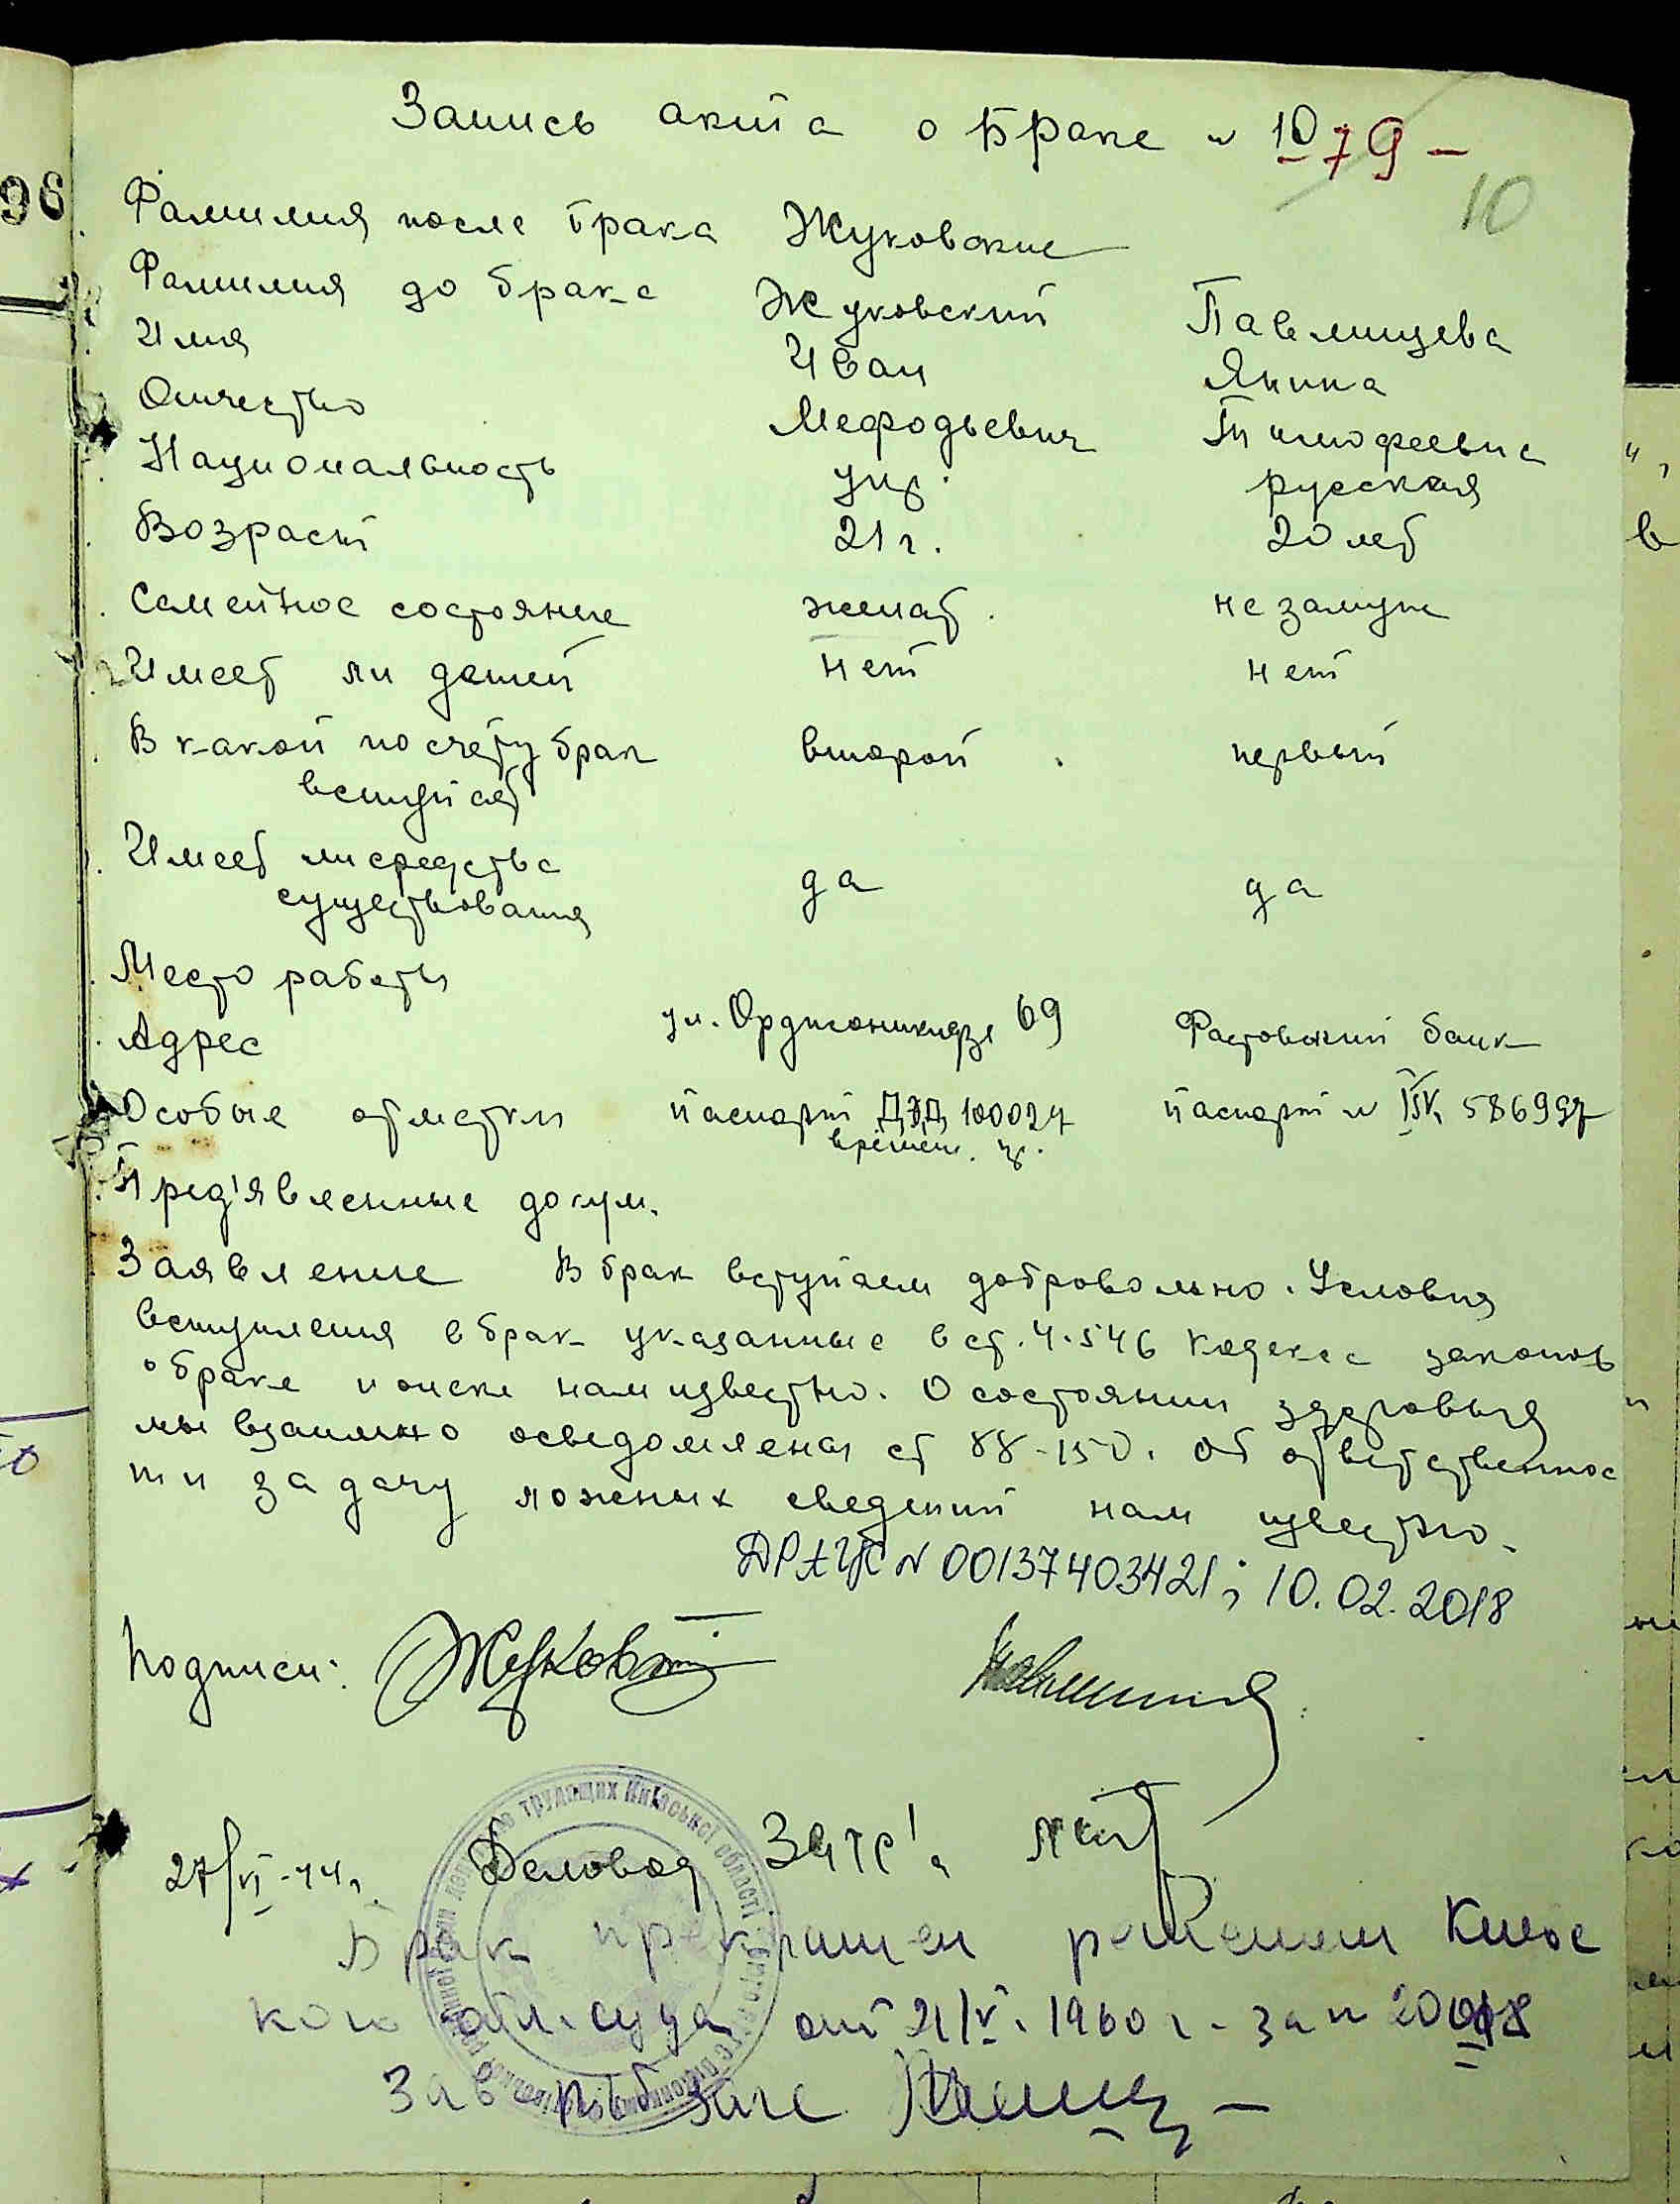 96
Запись акта о браке № 1079 –
10
Фамилия после брака Жуковские
Фамилия до брака Жуковский Павлищева
Имя Иван Янина
Отчество Мефодьевич Тимофеевна
Национальность укр. русская
Возраст 21 г. 20 лет
Семейное состояние женат. не замуж
Имеет ли детей нет нет
В какой по счёту брак второй . первый
вступает
Имеет ли средства
существования да да
Место работы
Адрес ул. Орджоникидзе 69 Фастовский банк
Особые отметки паспорт ДЭД 100027 паспорт №
времен.
Пред'явленные докум.
Заявление В брак вступаем добровольно. Условия
вступления в брак указанные в ст. 4.5 и 6 кодекса законов
о браке и опеке нам известно. О состоянии здоровья
мы взаимно осведомлены ст 88-150. Об ответственнос
ти за дачу ложных сведений нам известно.
ДРАЦС № 00137403421; 10.02.2018
Подписи: Жуковский
27/VI-44 г. Деловод
Брак прекращен решением Киевс
кого обл. суда от 21/V. 1960 г.
Зав